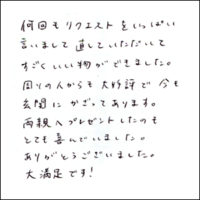 何回もリクエストをいっぱい
言いまして直していただいて
すごくいい物ができました。
周りの人からも大好評で今も
玄関にかざってあります。
両親へプレゼントしたのも
とても喜んでいました。
ありがとうございました。
大満足です!